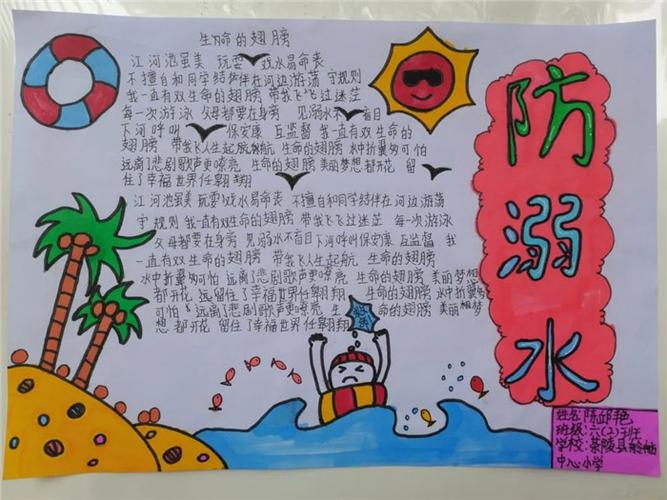 生命的翅膀
江河池虽美 玩耍 戏水易命丧
不擅自和同学结伴伴在河边游荡 守规则
我一直有双生命的翅膀 带我飞飞过迷茫
每一次游泳 父母都要在身旁 见溺水不盲目
下河呼叫 保安康 互监督 我一直有双生命的
翅膀 带我飞人生起航 生命的翅膀 水中折翼匆可怕
远离了悲剧歌声更嘹亮 生命的翅膀 美丽梦想都开花 留
住了幸福世界任翱翔
江河池虽美玩耍戏水易命丧 不擅自和同学结伴在河边游荡
守规则 我一直有双生命的翅膀 带我飞飞过迷茫 每一次游泳
父母都要在身旁 见溺水不盲目下河呼叫保安康 互监督 我
一直有双生命的翅膀 带我飞人生起航 生命的翅膀
水中折翼匆可怕 远离了悲剧歌声更嘹亮 生命的翅膀 美丽梦想
都开花 远留住了幸福世界任翱翔 生命的翅膀 水中折翼匆
可怕 远离了悲剧歌声更嘹亮 生 命的翅膀 美丽梦
想 都开花 留住了幸福世界任翱翔
防溺水
姓名:陈邱艳
班级:六(2)班
学校:茶陵县
中心小学